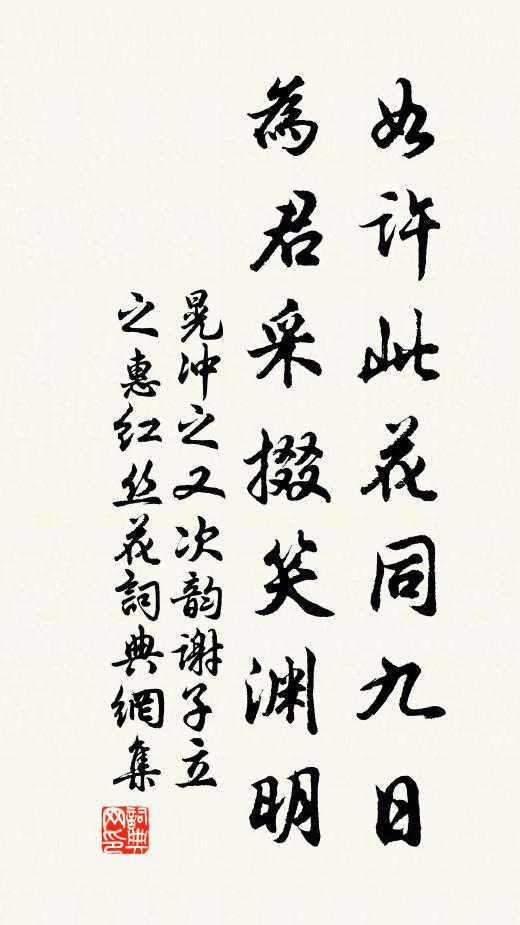 如许此花同九日
為君采掇笑渊明
晃冲之又次韵谢子立
之惠红丝花詞典網集
詞典网印